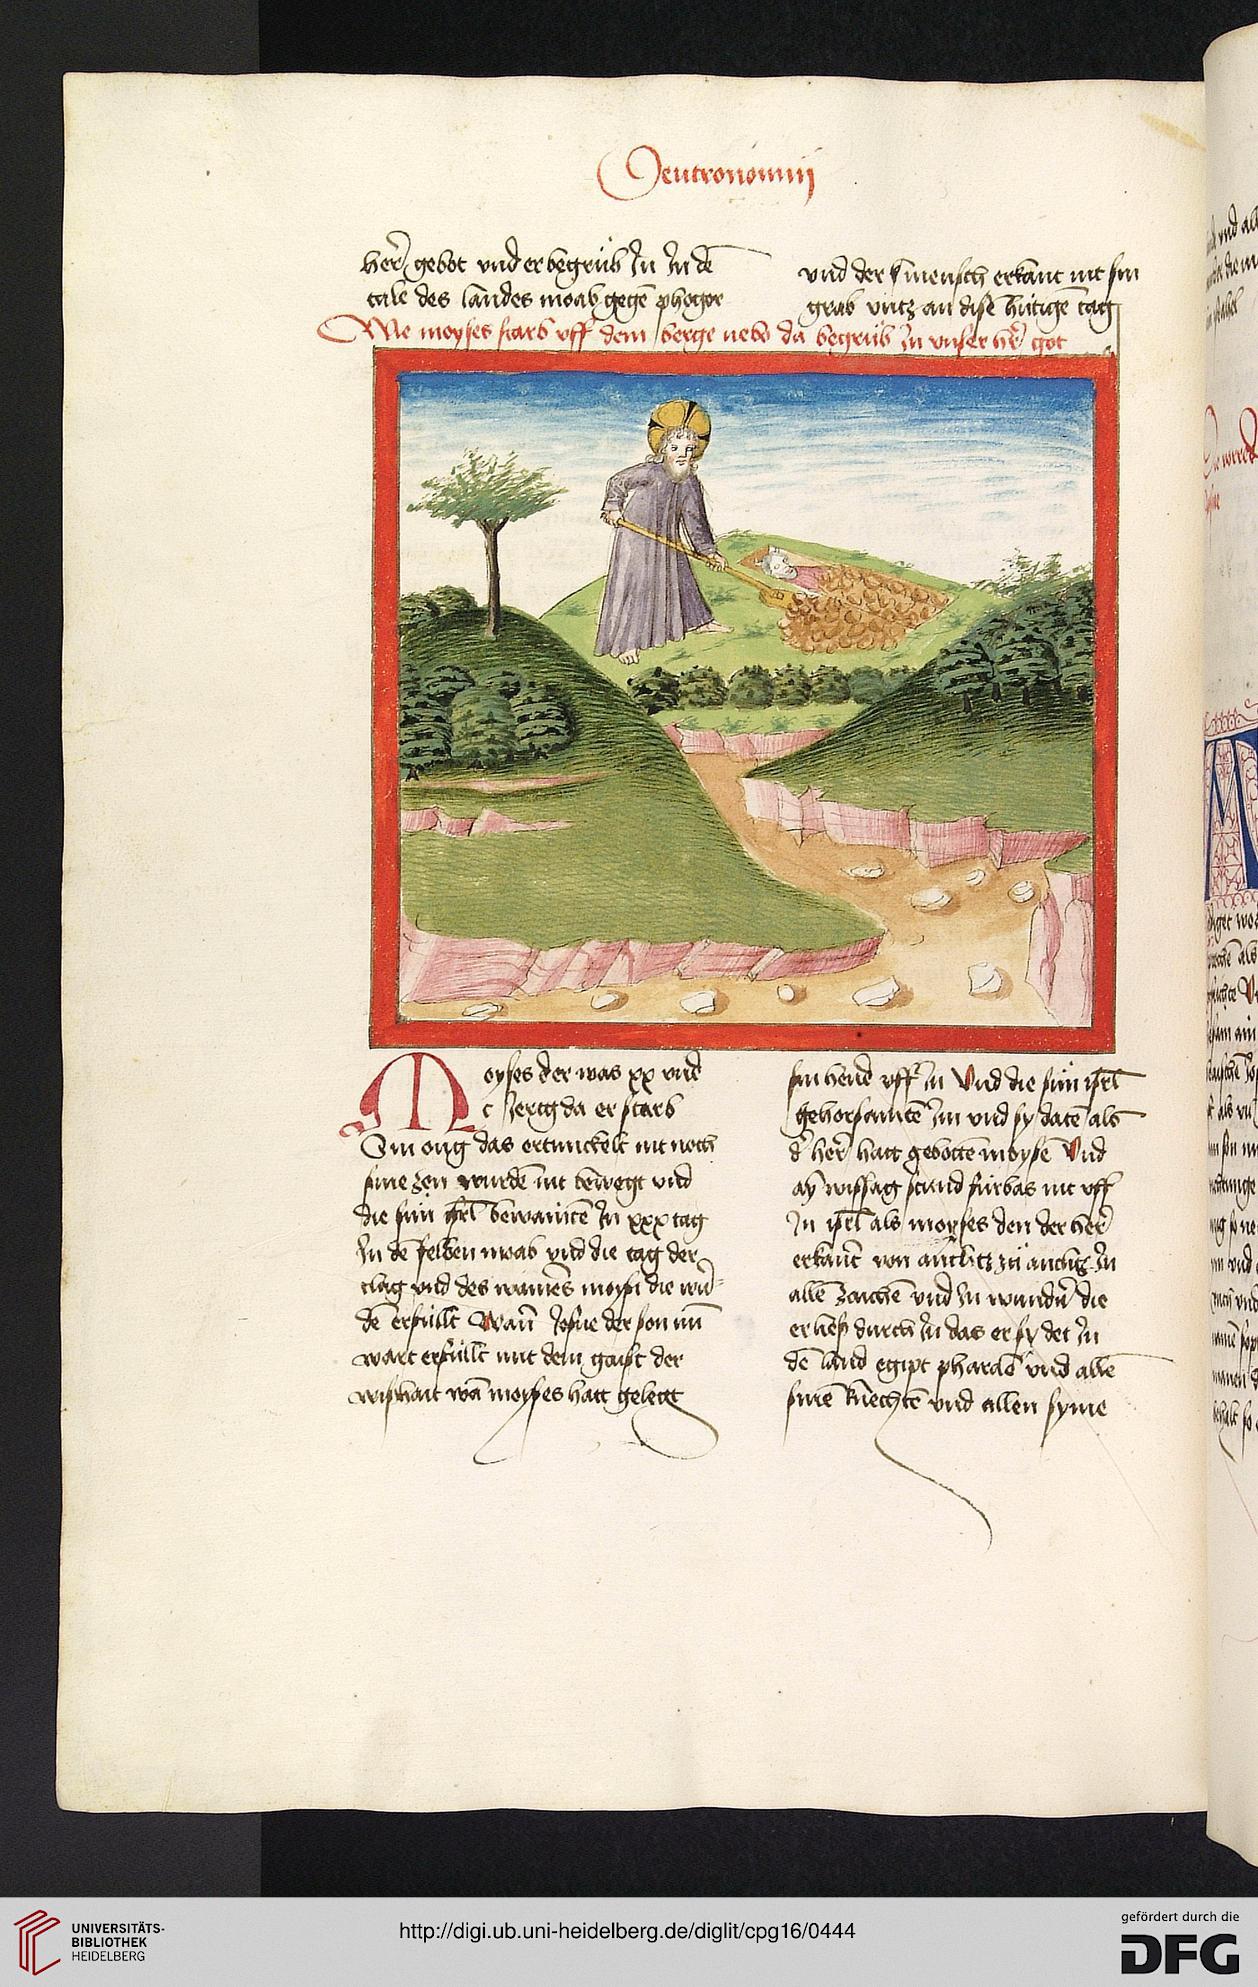 Deutronomii
her̄ gebot vnd er begrůb In In dē
tale des landes moab gegē phogor
vnd der kmensch erkant nit sin
grab vntz an disē hütigē tag
Wie moyses starb vff dem berge nebo da begrůb In vnser her̄ got
Moyses der was xx vnd
c Jerig da er starb
Sin oug das ertunckelt nit noch
sine zen wurdē nit bewegt vnd
die sün isrl̄ bewaintē In xxx tag
In dē felden moab vnd die tag der
clag vnd des wainēs moysi die wur-
dē erfüllt Wan̄ Josue der son nun
wart erfüllt mit dem gaist der
wishait wā moyses hatt gelegt
sin hend vff In Vnd die sün isrl̄
gehorsamtē Im vnd sy datē als
d' her̄ hatt gebottē moysē Vnd
ay wissag stund fürbas nit vff
In isrl̄ als moyses den der her̄
erkant von antlitz zů antlitz In
allē zaichē vnd In wundn̄ die
er ließ durch In das er sy det In
dē land egipt pharaō vnd allē
sinē knechtē vnd allen syme
UNIVERSITÄTS-
BIBLIOTHEK
HEIDELBERG
http://digi.ub.uni-heidelberg.de/diglit/cpg16/0444
gefördert durch die
DFG